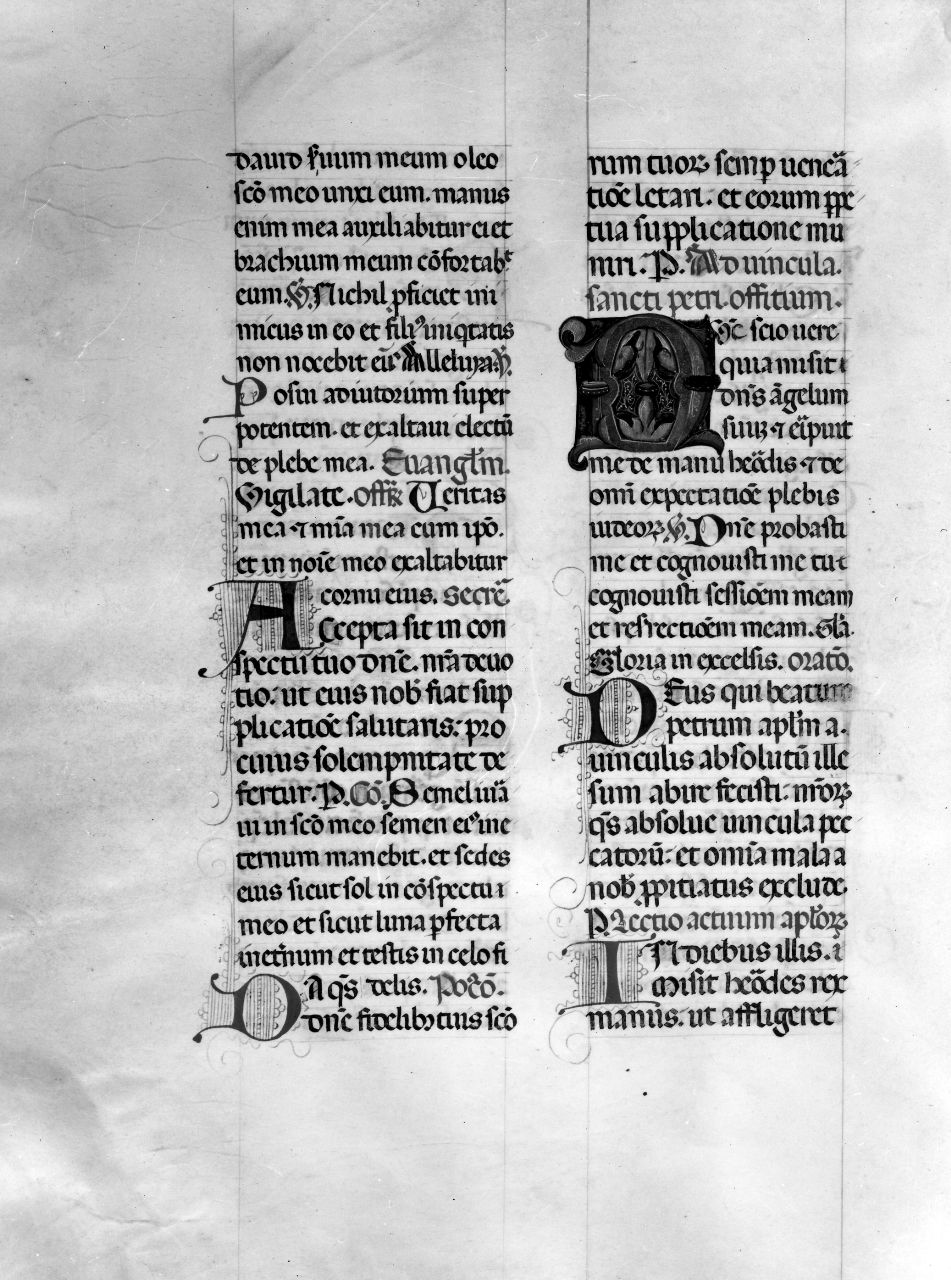 dauid s̃uum meum oleo
sc̃o meo unxi eum. manus
enim mea auxiliabitur ei et
brachium meum cõfortabᵗ
eum. ℣. Nichil ꝓficiet ini
micus in eo et filiꝰ iniq̇tatis
non nocebit ei. Alleluya. ℣.
Posui adiutorium super
potentem. et exaltaui electũ
de plebe mea. Euangl̃m.
Vigilate. Off̃. Ueritas
mea ⁊ mĩa mea cum ipõ.
et in noĩe meo exaltabitur
cornu eius. Secre᷑.
Accepta sit in con
spectu tuo dñe. nr̃a deuo
tio: ut eius nob̃ fiat sup
plicatiõe salutaris: pro
cuius solempnitate de
fertur. P. Cõ. Semel iura
ui in sc̃o meo semen eiꝰ in e
ternum manebit. et sedes
eius sicut sol in cõspectu
meo et sicut luna ꝑfecta
inet̃num et testis in celo fi
delis. Poscõ.
Da qs̃
dñe fidelibꝫ tuis sc̃o
rum tuoꝝ semꝑ uenẽa
tiõe letari. et eorum ꝑpe
tua supplicatione mu
niri. P. Ad uincula.
sancti petri. offitium.
Nũc scio uere
quia misit
dñs ãgelum
suũ ⁊ eĩpuit
me de manu herõdis ⁊ de
omĩ expectatiõe plebis
iudeoꝝ. ℣. Dñe probasti
me et cognouisti me tu
cognouisti sessiõem meam
et resrectiõem meam. Gl̃a.
Gloria in excelsis. Oratõ.
Deus qui beatum
petrum apl̃m a
uinculis absolutũ ille
sum abire fecisti. nr̃oꝝ
qs̃ absolue uincula pec
catorũ: et omĩa mala a
nob̃ ꝓpitiatus exclude.
P. Lectio actuum apl̃oꝝ
IN diebus illis. ĩ
misit herõdes rex
manus. ut affligeret